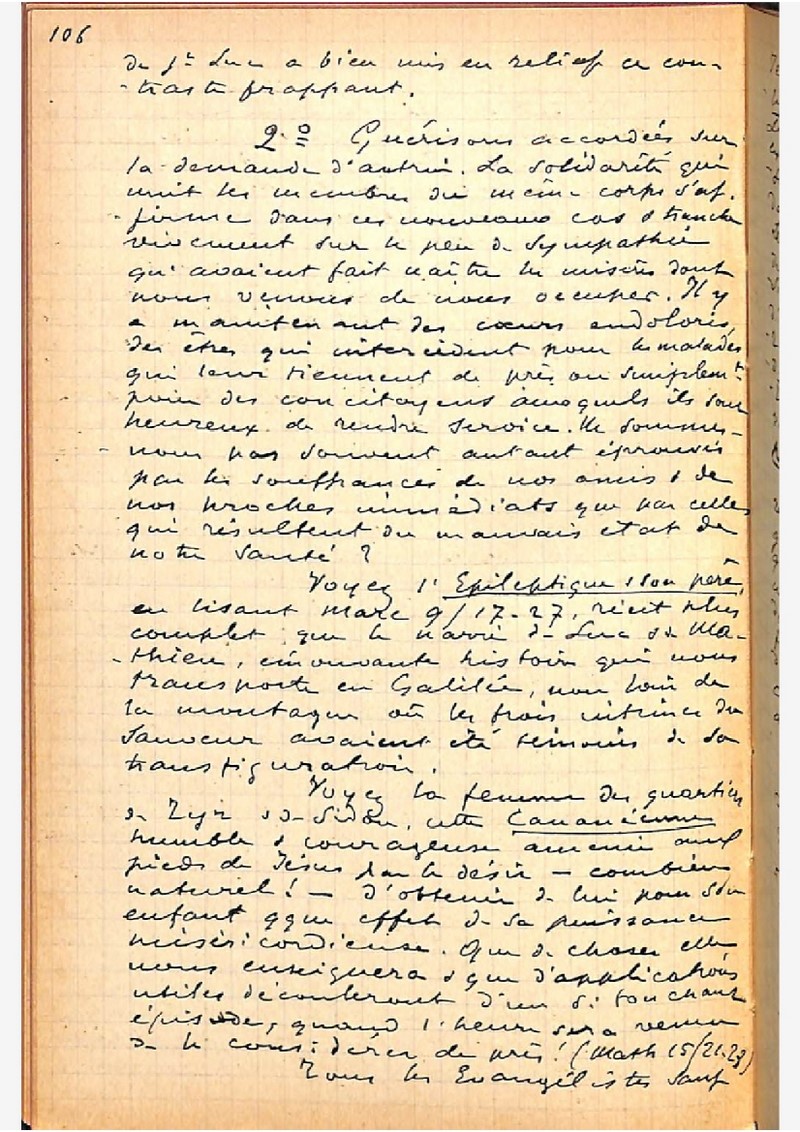 106
de St Luc a bien mis en relief ce con-
-traste frappant.
2º Guérisons accordées sur
la demande d'autrui. La solidarité qui
unit les membres du même corps s'af-
-firme dans ces nouveaux cas & tranche
vivement sur le peu de sympathie
qu'avaient fait naître les misères dont
nous venons de nous occuper. Il y
a maintenant des cœurs endoloris,
des êtres qui intercèdent pour les malades
qui leur tiennent de près ou simplemt
pour des concitoyens auxquels ils sont
heureux de rendre service. Ne sommes-
-nous pas souvent autant éprouvés
par les souffrances de nos amis & de
nos proches immédiats que par celles
qui résultent du mauvais état de
notre santé ?
Voyez l'Epileptique & son père,
en lisant Marc 9/17-27, récit plus
complet que le narré de Luc & de Ma-
-thieu, émouvante histoire qui nous
transporte en Galilée, non loin de
la montagne où les trois intimes du
Sauveur avaient été témoins de sa
transfiguration.
Voyez la femme des quartiers
de Tyr & de Sidon, cette Cananéenne
humble & courageuse amenée aux
pieds de Jésus par le désir — combien
naturel ! — d'obtenir de lui pour son
enfant qque effet de sa puissance
miséricordieuse. Que de choses elle
nous enseignera & que d'applications
utiles découleront d'un si touchant
épisode, quand l'heure sera venue
de le considérer de près ! (Math 15/21-28)
Tous les Evangélistes sauf